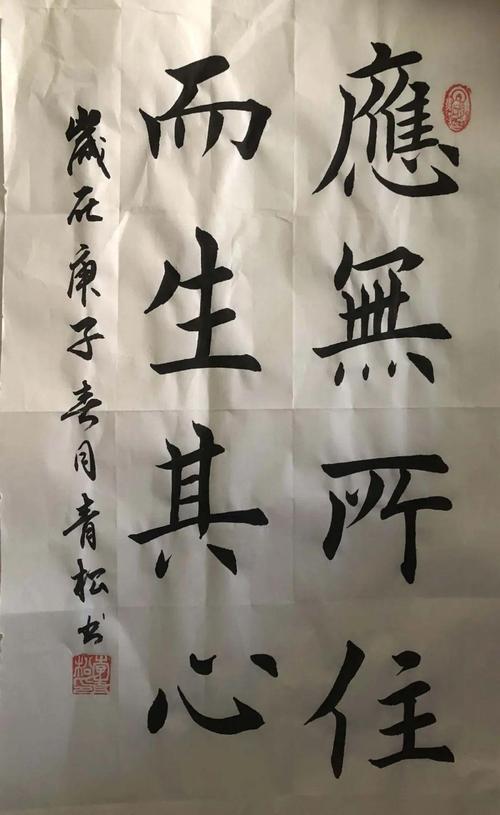 應無所住
而生其心
歲在庚子春月青松书